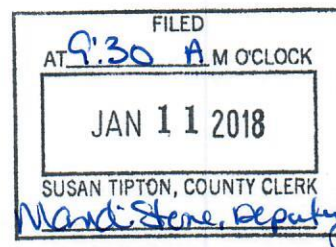 FILED
AT 9:30 A M O'CLOCK
JAN 11 2018
SUSAN TIPTON, COUNTY CLERK
Mandi Stene, Deputy